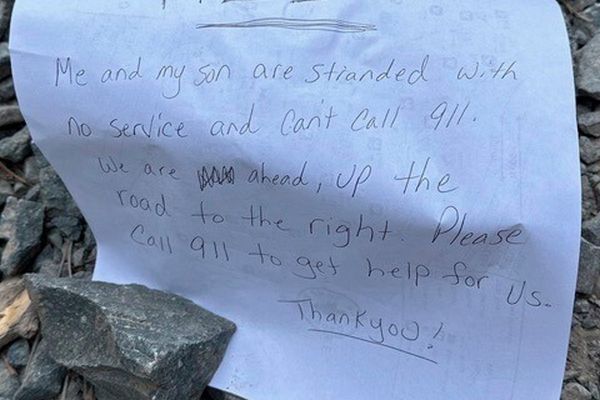 Me and my son are stranded with
no service and can't call 911.
We are ahead, up the
road to the right. Please
call 911 to get help for us.
Thankyou!